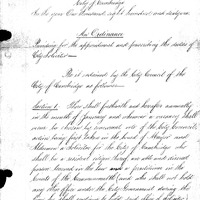 City of Cambridge
In the year One thousand eight hundred and
An Ordinance
Providing for the appointment and prescribing the duties of
City Solicitor
Be it ordained by the City Council of the
City of Cambridge as follows
Section 1. There shall forthwith and hereafter annually
in the month of January and whenever a vacancy shall
occur be chosen by concurrent vote of the City Council,
action being first taken in the board of Mayor and
Aldermen a Solicitor for the City of Cambridge who
shall be a resident citizen thereof an able and discreet
person learned in the law and a practitioner in the
Courts of the Commonwealth and who shall not hold
any other office under the City Government during the